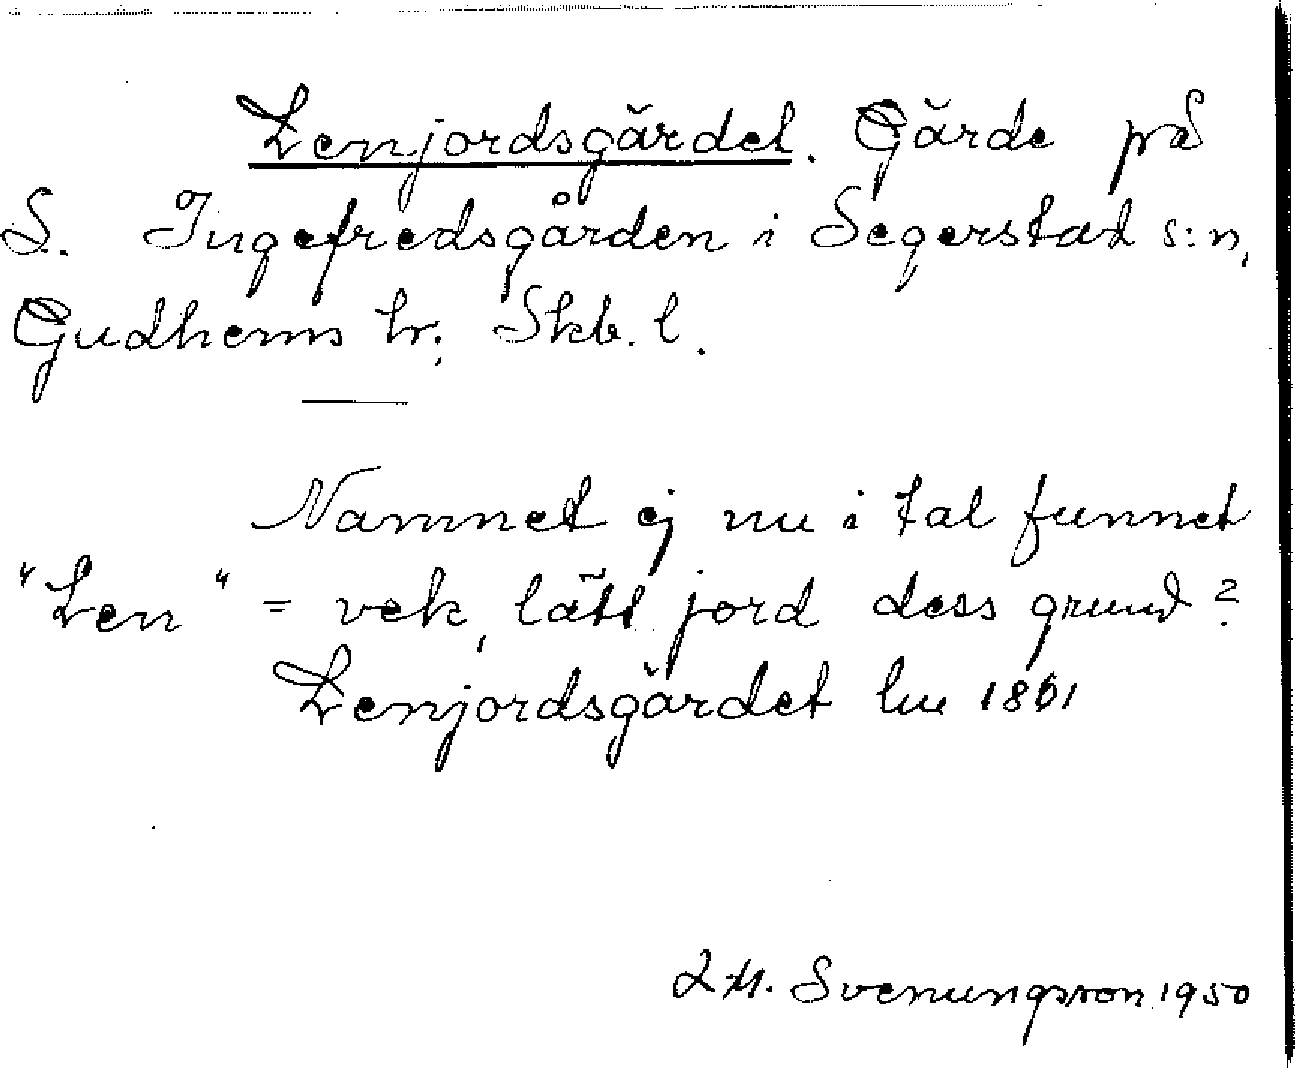 Lenjordsgärdet. Gärde på
S. Ingefredsgården i Segerstad s:n,
Gudhems hr, Skb. l.
Namnet ej nu i tal funnet
"Len" = vek, lätt jord dess grund?
Lenjordsgärdet lm 1861
L M. Svenungsson 1950